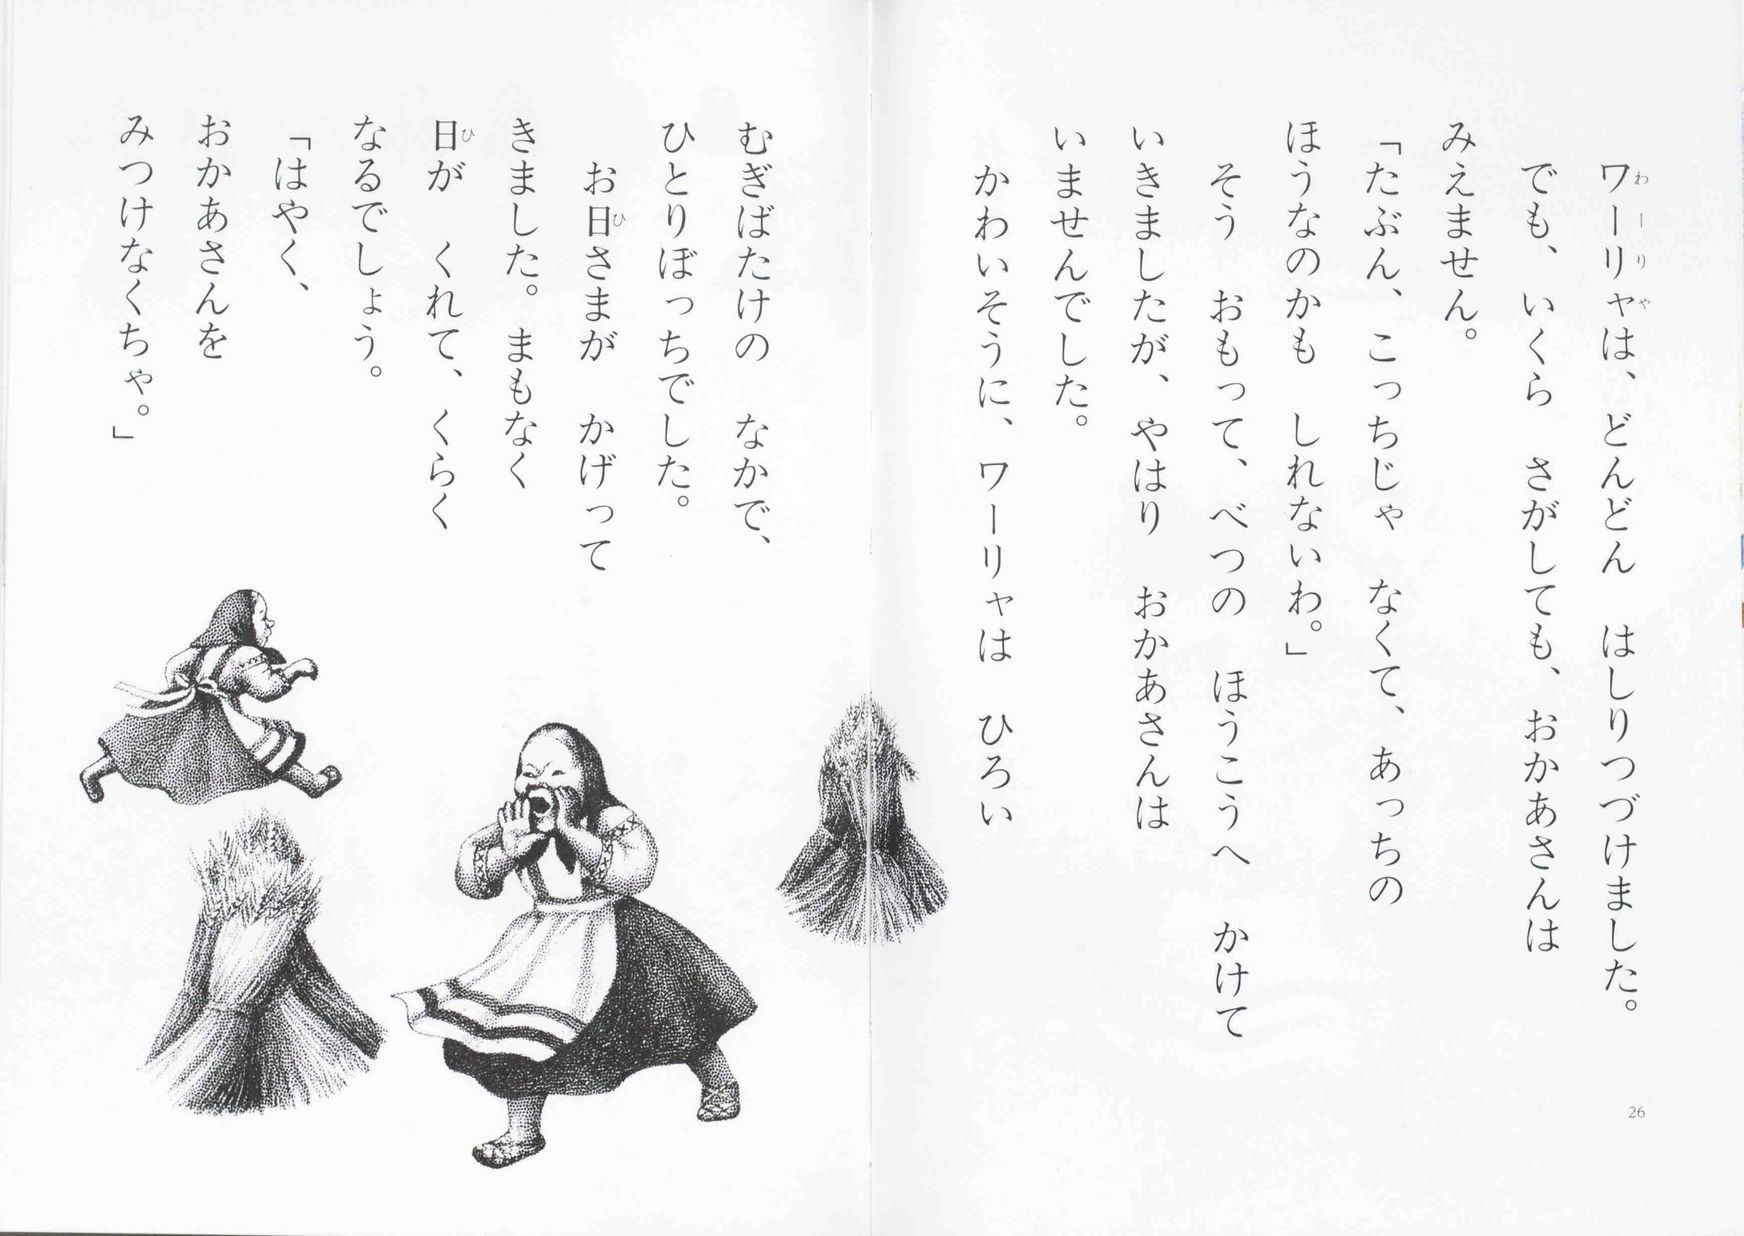 ワーリャは、どんどん　はしりつづけました。
でも、いくら　さがしても、おかあさんは
みえません。
「たぶん、こっちじゃ　なくて、あっちの
ほうなのかも　しれないわ。」
そう　おもって、べつの　ほうこうへ　かけて
いきましたが、やはり　おかあさんは
いませんでした。
かわいそうに、ワーリャは　ひろい
むぎばたけの　なかで、
ひとりぼっちでした。
お日さまが　かげって
きました。まもなく
日が　くれて、くらく
なるでしょう。
「はやく、
おかあさんを
みつけなくちゃ。」
わーりや
ひ
ひ
26